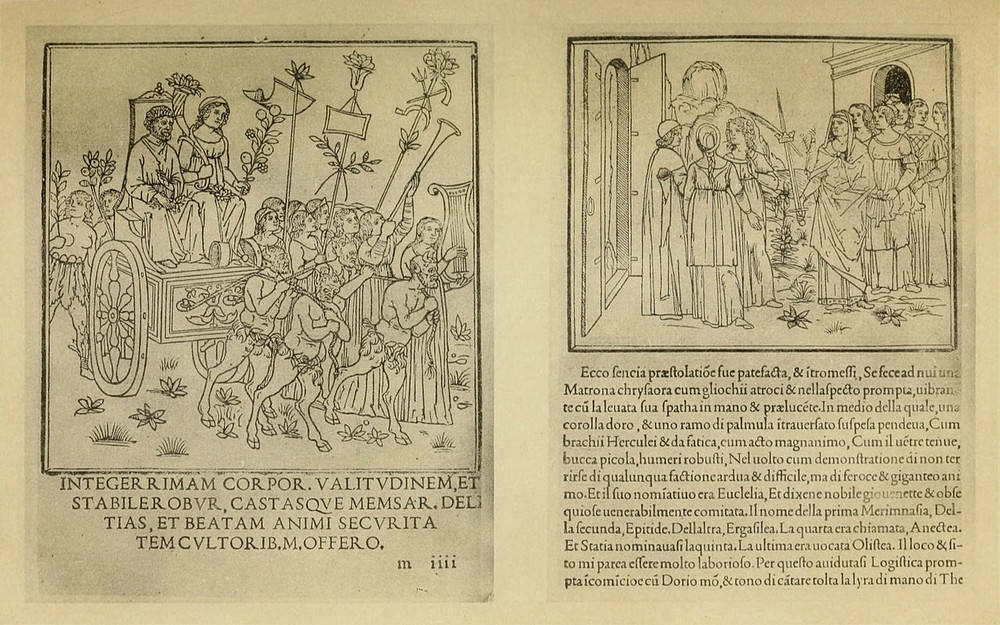 INTEGERRIMAM CORPOR. VALITVDINEM, ET
STABILEROBVR, CASTASQVE MEMSAR. DELI
TIAS, ET BEATAM ANIMI SECVRITA
TEM CVLTORIB. M. OFFERO.
m iiii
Ecco sencia præstolatiõe fue patefacta, & ĩtromessi, Se fece ad nui una
Matrona chrysaora cum gli ochii atroci & nell aspecto prompta, uibran
te cũ la leuata sua spatha in mano & prælucẽte. In medio della quale, una
corolla doro, & uno ramo di palmula ĩtrauersato suspesa pendeua, Cum
brachii Herculei & da fatica, cum acto magnanimo, Cum il uẽtre tenue,
bucca picola, humeri robusti, Nel uolto cum demonstratione di non ter
rirse di qualunqua factione ardua & difficile, ma di feroce & giganteo ani
mo. Et il suo nomĩatiuo era Euclelia, Et dixene nobile giouenette & obse
quiose uenerabilmente comitata. Il nome della prima Merimnasia, Del-
la secunda, Epitide. Dellaltra, Ergasilea. La quarta era chiamata, Anectea.
Et Statia nominauasi la quinta. La ultima era uocata Olistea. Il loco & si-
to mi parea essere molto laborioso. Per questo auidutasi Logistica prom-
pta ĩcomĩcioe cũ Dorio mõ, & tono di cãtare tolta la lyra di mano di The